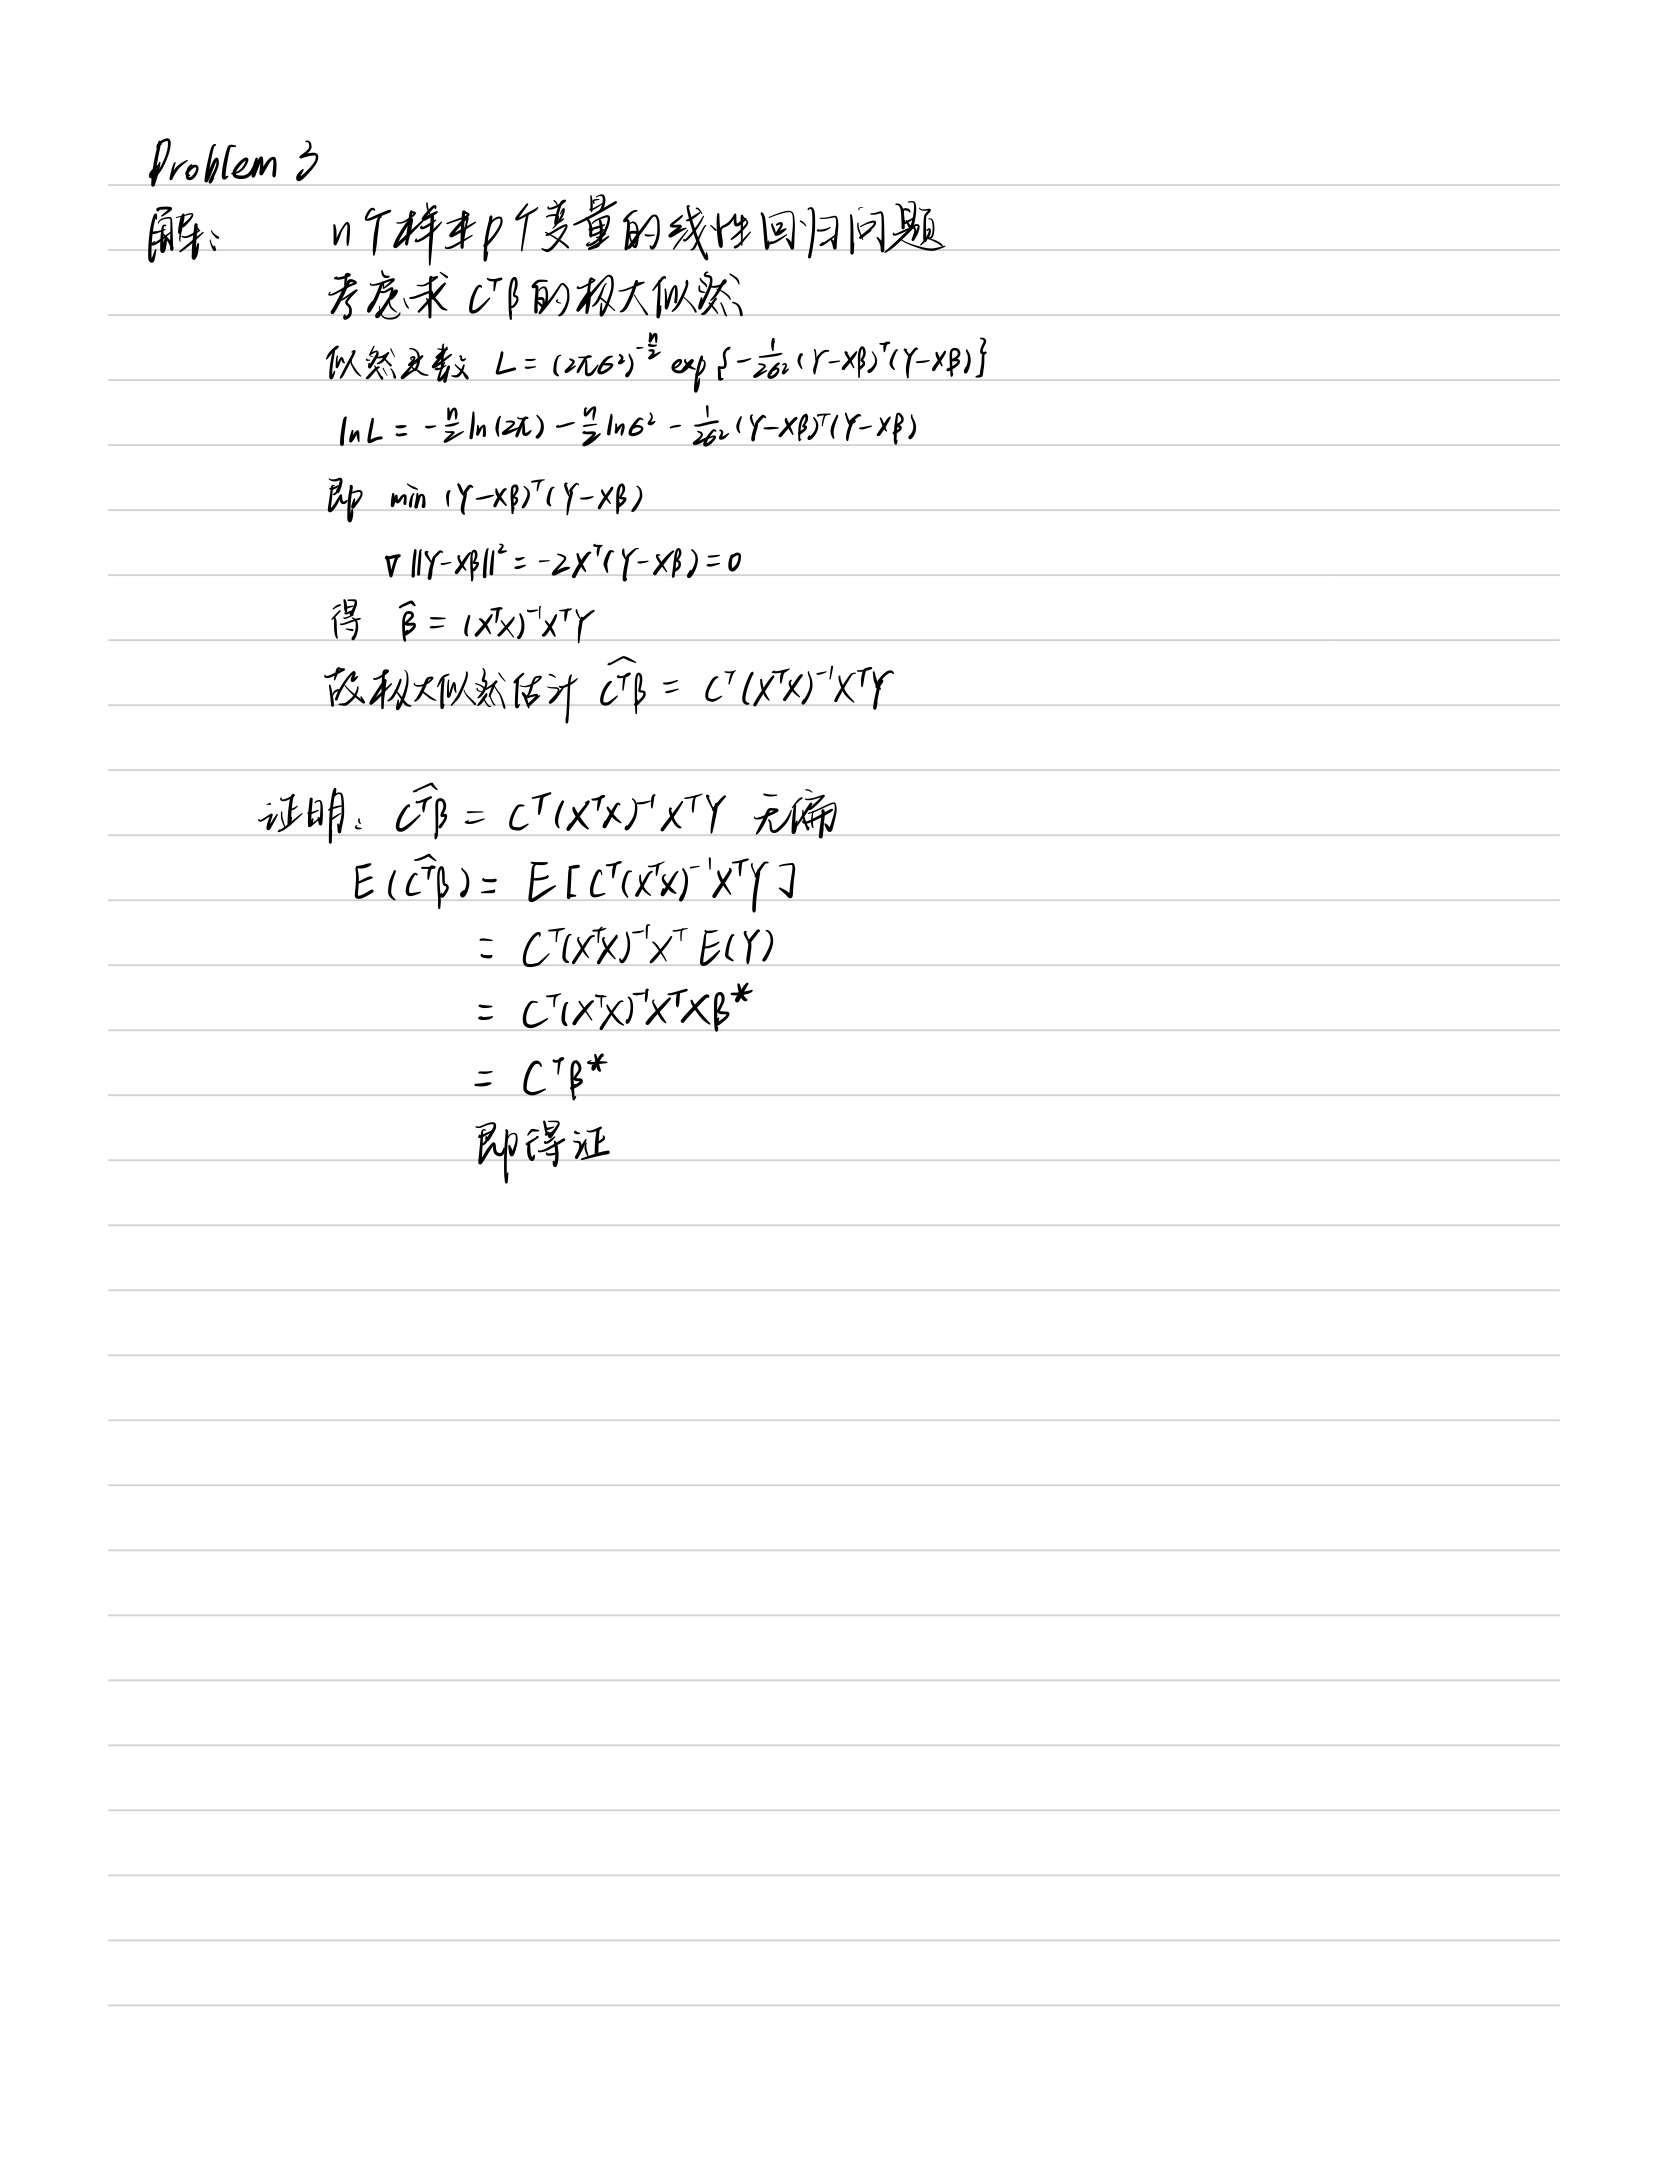 Problem 3
解: n个样本p个变量的线性回归问题
考虑求 C^Tβ的极大似然
似然函数 L = (2πσ²)^{-n/2} exp{-\frac{1}{2σ²}(Y-Xβ)^T(Y-Xβ)}
lnL = -\frac{n}{2}ln(2π) - \frac{n}{2}lnσ² - \frac{1}{2σ²}(Y-Xβ)^T(Y-Xβ)
即 min (Y-Xβ)^T(Y-Xβ)
∇‖Y-Xβ‖² = -2X^T(Y-Xβ) = 0
得 \hat{β} = (X^TX)^{-1}X^TY
故极大似然估计 \widehat{C^Tβ} = C^T(X^TX)^{-1}X^TY
证明: \widehat{C^Tβ} = C^T(X^TX)^{-1}X^TY 无偏
E(\widehat{C^Tβ}) = E[C^T(X^TX)^{-1}X^TY]
= C^T(X^TX)^{-1}X^T E(Y)
= C^T(X^TX)^{-1}X^TXβ*
= C^Tβ*
即得证